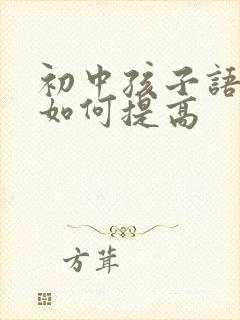 初中孩子語
如何提高
方茸